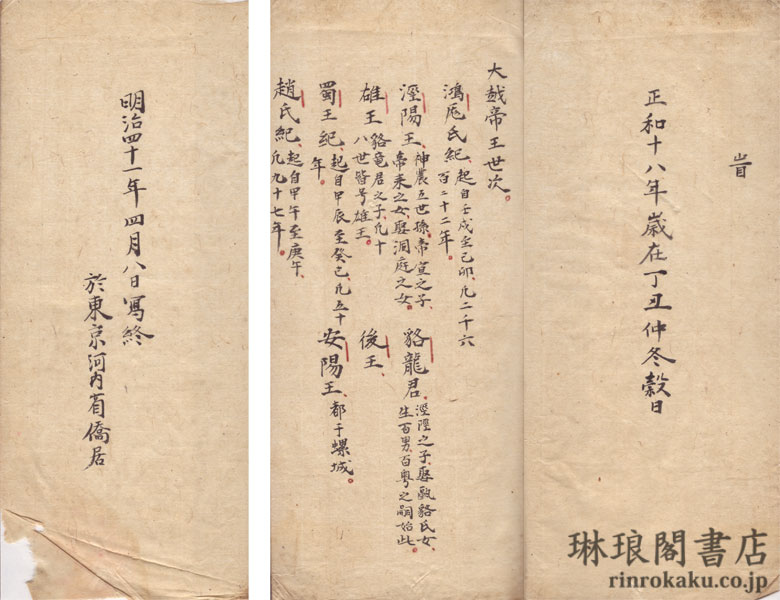 旹
正和十八年歲在丁丑仲冬穀日
大越帝王世次。
鴻厖氏紀、起自壬戌至己卯、凡二千六
百二十二年。
涇陽王、神農五世孫、帝宣之子、
帝来之女、娶洞庭之女。
貉龍君、涇陽之子、娶甌貉氏女、
生百男、百粤之嗣始此。
雄王、貉竜君之子、凡十
八世皆号雄王。
後王、
蜀王紀、起自甲辰至癸巳、凡五十
年。
安陽王、都于螺城。
趙氏紀、起自甲午至庚午、
凡九十七年。
明治四十一年四月八日寫終
於東京河内省僑居
琳琅閣書店
rinrokaku.co.jp